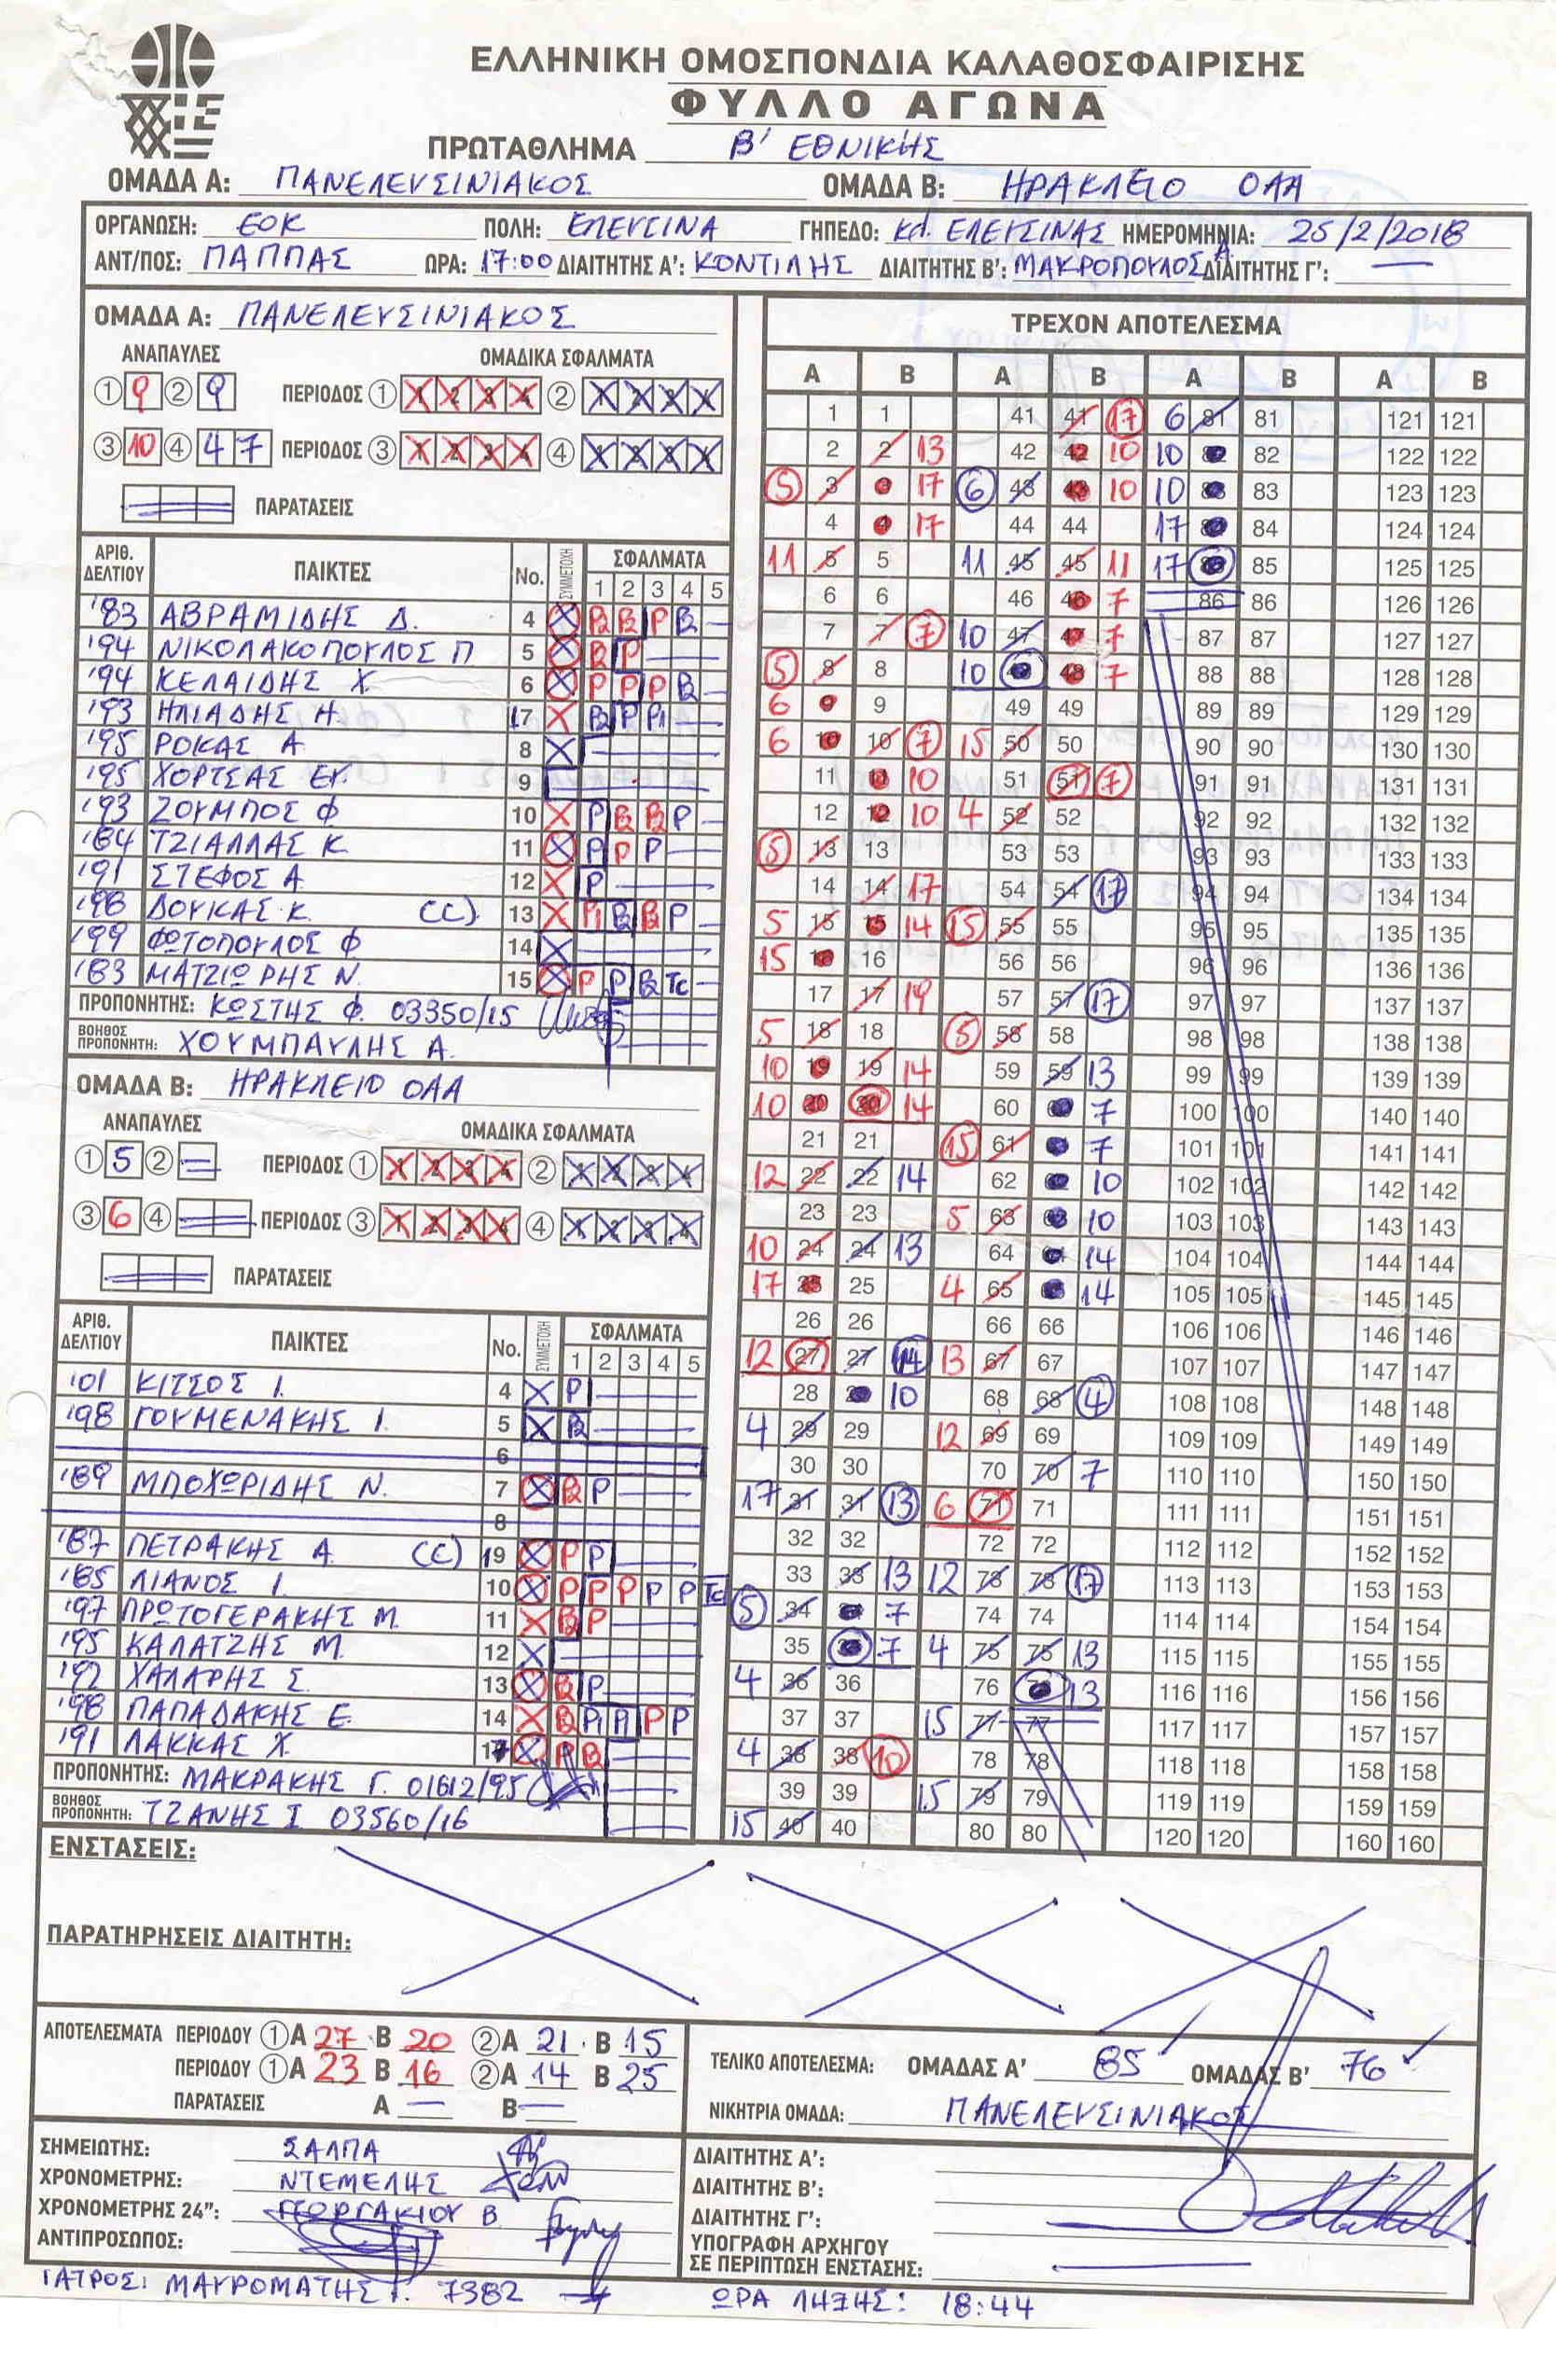 ΕΛΛΗΝΙΚΗ ΟΜΟΣΠΟΝΔΙΑ ΚΑΛΑΘΟΣΦΑΙΡΙΣΗΣ
ΦΥΛΛΟ ΑΓΩΝΑ
ΠΡΩΤΑΘΛΗΜΑ Β' ΕΘΝΙΚΗΣ
ΟΜΑΔΑ Α: ΠΑΝΕΛΕΥΣΙΝΙΑΚΟΣ ΟΜΑΔΑ Β: ΗΡΑΚΛΕΙΟ ΟΑΑ
ΟΡΓΑΝΩΣΗ: ΕΟΚ ΠΟΛΗ: ΕΛΕΥΣΙΝΑ ΓΗΠΕΔΟ: Κλ. ΕΛΕΥΣΙΝΑΣ ΗΜΕΡΟΜΗΝΙΑ: 25/2/2018
ΑΝΤ/ΠΟΣ: ΠΑΠΠΑΣ ΩΡΑ: 17:00 ΔΙΑΙΤΗΤΗΣ Α': ΚΟΝΤΙΛΗΣ ΔΙΑΙΤΗΤΗΣ Β': ΜΑΚΡΟΠΟΥΛΟΣ Α ΔΙΑΙΤΗΤΗΣ Γ': —
ΟΜΑΔΑ Α: ΠΑΝΕΛΕΥΣΙΝΙΑΚΟΣ
ΑΝΑΠΑΥΛΕΣ ΟΜΑΔΙΚΑ ΣΦΑΛΜΑΤΑ
1 9 2 9 ΠΕΡΙΟΔΟΣ 1 1 2 3 4 2 1 2 3 4
3 10 4 4 7 ΠΕΡΙΟΔΟΣ 3 1 2 3 4 4 1 2 3 4
ΠΑΡΑΤΑΣΕΙΣ
ΑΡΙΘ. ΔΕΛΤΙΟΥ ΠΑΙΚΤΕΣ No. ΣΥΜΜΕΤΟΧΗ ΣΦΑΛΜΑΤΑ
1 2 3 4 5
'83 ΑΒΡΑΜΙΔΗΣ Δ. 4 X B B P B —
'94 ΝΙΚΟΛΑΚΟΠΟΥΛΟΣ Π 5 X B P
'94 ΚΕΛΑΙΔΗΣ Χ 6 X P P P B —
'93 ΗΛΙΑΔΗΣ Η. 17 X B P P1
'95 ΡΟΚΑΣ Α 8 X
'95 ΧΟΡΤΣΑΣ ΕΥ. 9
'93 ΖΟΥΜΠΟΣ Φ 10 X P B B P —
'84 ΤΖΙΑΛΛΑΣ Κ. 11 X P P P
'91 ΣΤΕΦΟΣ Α. 12 X P
'98 ΔΟΥΚΑΣ Κ. (C) 13 X P1 B B P —
'99 ΦΩΤΟΠΟΥΛΟΣ Φ 14 X
'83 ΜΑΤΖΙΩΡΗΣ Ν. 15 X P P B Tc —
ΠΡΟΠΟΝΗΤΗΣ: ΚΩΣΤΗΣ Φ. 03350/15
ΒΟΗΘΟΣ ΠΡΟΠΟΝΗΤΗ: ΧΟΥΜΠΑΥΛΗΣ Α.
ΟΜΑΔΑ Β: ΗΡΑΚΛΕΙΟ ΟΑΑ
ΑΝΑΠΑΥΛΕΣ ΟΜΑΔΙΚΑ ΣΦΑΛΜΑΤΑ
1 5 2 = ΠΕΡΙΟΔΟΣ 1 1 2 3 4 2 1 2 3 4
3 6 4 ΠΕΡΙΟΔΟΣ 3 1 2 3 4 4 1 2 3 4
ΠΑΡΑΤΑΣΕΙΣ
ΑΡΙΘ. ΔΕΛΤΙΟΥ ΠΑΙΚΤΕΣ No. ΣΥΜΜΕΤΟΧΗ ΣΦΑΛΜΑΤΑ
1 2 3 4 5
'01 ΚΙΤΣΟΣ Ι. 4 X P
'98 ΓΟΥΜΕΝΑΚΗΣ Ι. 5 X B
6
'89 ΜΠΟΧΩΡΙΔΗΣ Ν. 7 X B P
8
'87 ΠΕΤΡΑΚΗΣ Α. (C) 19 X P P
'85 ΛΙΑΝΟΣ Ι. 10 X P P P P P Tc
'97 ΠΡΩΤΟΓΕΡΑΚΗΣ Μ. 11 X B P
'95 ΚΑΛΑΤΖΗΣ Μ. 12 X
'92 ΧΑΛΑΡΗΣ Σ. 13 X B P
'98 ΠΑΠΑΔΑΚΗΣ Ε. 14 X B P1 P P
'91 ΛΑΚΚΑΣ Χ. 17 X P B
ΠΡΟΠΟΝΗΤΗΣ: ΜΑΚΡΑΚΗΣ Γ. 01612/95
ΒΟΗΘΟΣ ΠΡΟΠΟΝΗΤΗ: ΤΖΑΝΗΣ Ι 03560/16
ΤΡΕΧΟΝ ΑΠΟΤΕΛΕΣΜΑ
Α Β Α Β Α Β Α Β
1 1 41 41 17 6 81 81 121 121
2 2 13 42 42 10 10 82 82 122 122
5 3 3 17 6 43 43 10 10 83 83 123 123
4 4 17 44 44 17 84 84 124 124
11 5 5 11 45 45 11 17 85 85 125 125
6 6 46 46 7 86 86 126 126
7 7 7 10 47 47 7 87 87 127 127
5 8 8 10 48 48 7 88 88 128 128
6 9 9 49 49 89 89 129 129
6 10 10 7 15 50 50 90 90 130 130
11 11 10 51 51 7 91 91 131 131
12 12 10 4 52 52 92 92 132 132
5 13 13 53 53 93 93 133 133
14 14 17 54 54 17 94 94 134 134
5 15 15 14 15 55 55 95 95 135 135
15 16 16 56 56 96 96 136 136
17 17 19 57 57 17 97 97 137 137
5 18 18 5 58 58 98 98 138 138
10 19 19 14 59 59 13 99 99 139 139
10 20 20 14 60 60 7 100 100 140 140
21 21 15 61 61 7 101 101 141 141
12 22 22 14 62 62 10 102 102 142 142
23 23 5 63 63 10 103 103 143 143
10 24 24 13 64 64 14 104 104 144 144
17 25 25 4 65 65 14 105 105 145 145
26 26 66 66 106 106 146 146
12 27 27 14 13 67 67 107 107 147 147
28 28 10 68 68 4 108 108 148 148
4 29 29 12 69 69 109 109 149 149
30 30 70 70 7 110 110 150 150
17 31 31 13 6 71 71 111 111 151 151
32 32 72 72 112 112 152 152
33 33 13 12 73 73 17 113 113 153 153
5 34 34 7 74 74 114 114 154 154
35 35 7 4 75 75 13 115 115 155 155
4 36 36 76 76 13 116 116 156 156
37 37 15 77 77 117 117 157 157
4 38 38 10 78 78 118 118 158 158
39 39 15 79 79 119 119 159 159
15 40 40 80 80 120 120 160 160
ΕΝΣΤΑΣΕΙΣ:
ΠΑΡΑΤΗΡΗΣΕΙΣ ΔΙΑΙΤΗΤΗ:
ΑΠΟΤΕΛΕΣΜΑΤΑ ΠΕΡΙΟΔΟΥ 1 Α 27 Β 20 2 Α 21 Β 15
ΠΕΡΙΟΔΟΥ 1 Α 23 Β 16 2 Α 14 Β 25
ΠΑΡΑΤΑΣΕΙΣ Α — Β —
ΤΕΛΙΚΟ ΑΠΟΤΕΛΕΣΜΑ: ΟΜΑΔΑΣ Α' 85 ΟΜΑΔΑΣ Β' 76
ΝΙΚΗΤΡΙΑ ΟΜΑΔΑ: ΠΑΝΕΛΕΥΣΙΝΙΑΚΟΣ
ΣΗΜΕΙΩΤΗΣ: ΣΑΛΠΑ
ΧΡΟΝΟΜΕΤΡΗΣ: ΝΤΕΜΕΛΗΣ
ΧΡΟΝΟΜΕΤΡΗΣ 24": ΓΕΩΡΓΑΚΙΟΥ Β
ΑΝΤΙΠΡΟΣΩΠΟΣ:
ΔΙΑΙΤΗΤΗΣ Α':
ΔΙΑΙΤΗΤΗΣ Β':
ΔΙΑΙΤΗΤΗΣ Γ':
ΥΠΟΓΡΑΦΗ ΑΡΧΗΓΟΥ
ΣΕ ΠΕΡΙΠΤΩΣΗ ΕΝΣΤΑΣΗΣ:
ΙΑΤΡΟΣ: ΜΑΥΡΟΜΑΤΗΣ Γ. 7382 ΩΡΑ ΛΗΞΗΣ: 18:44